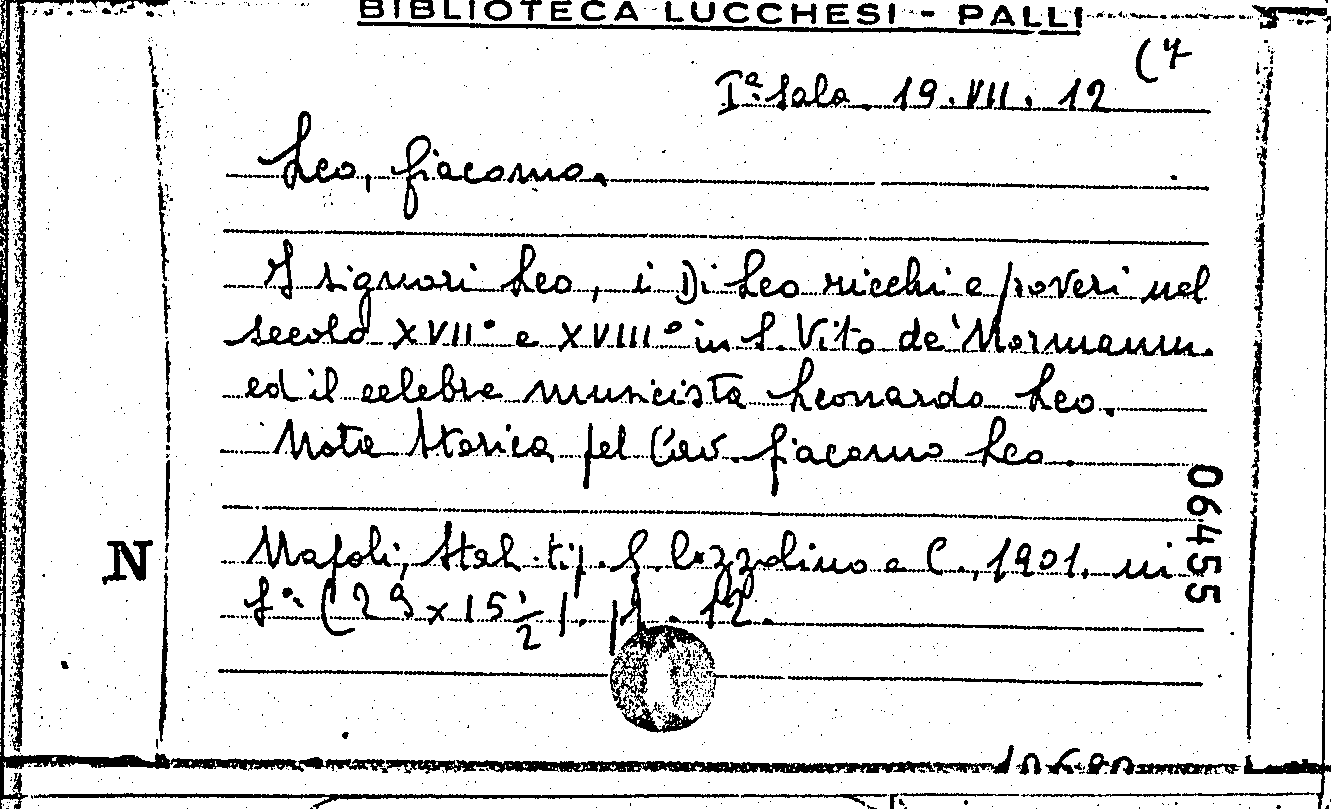 BIBLIOTECA LUCCHESI - PALLI
(7
Iª Sala. 19. VII. 12
Leo, Giacomo.
I signori Leo, i Di Leo ricchi e poveri nel
secolo XVII° e XVIII° in S. Vito de' Normanni.
ed il celebre musicista Leonardo Leo.
Nota Storica pel Cav. Giacomo Leo.
Napoli, Stab. tip. G. Cozzolino e C., 1901. in
8° (23 x 15 1/2). pp. 12.
N
06455